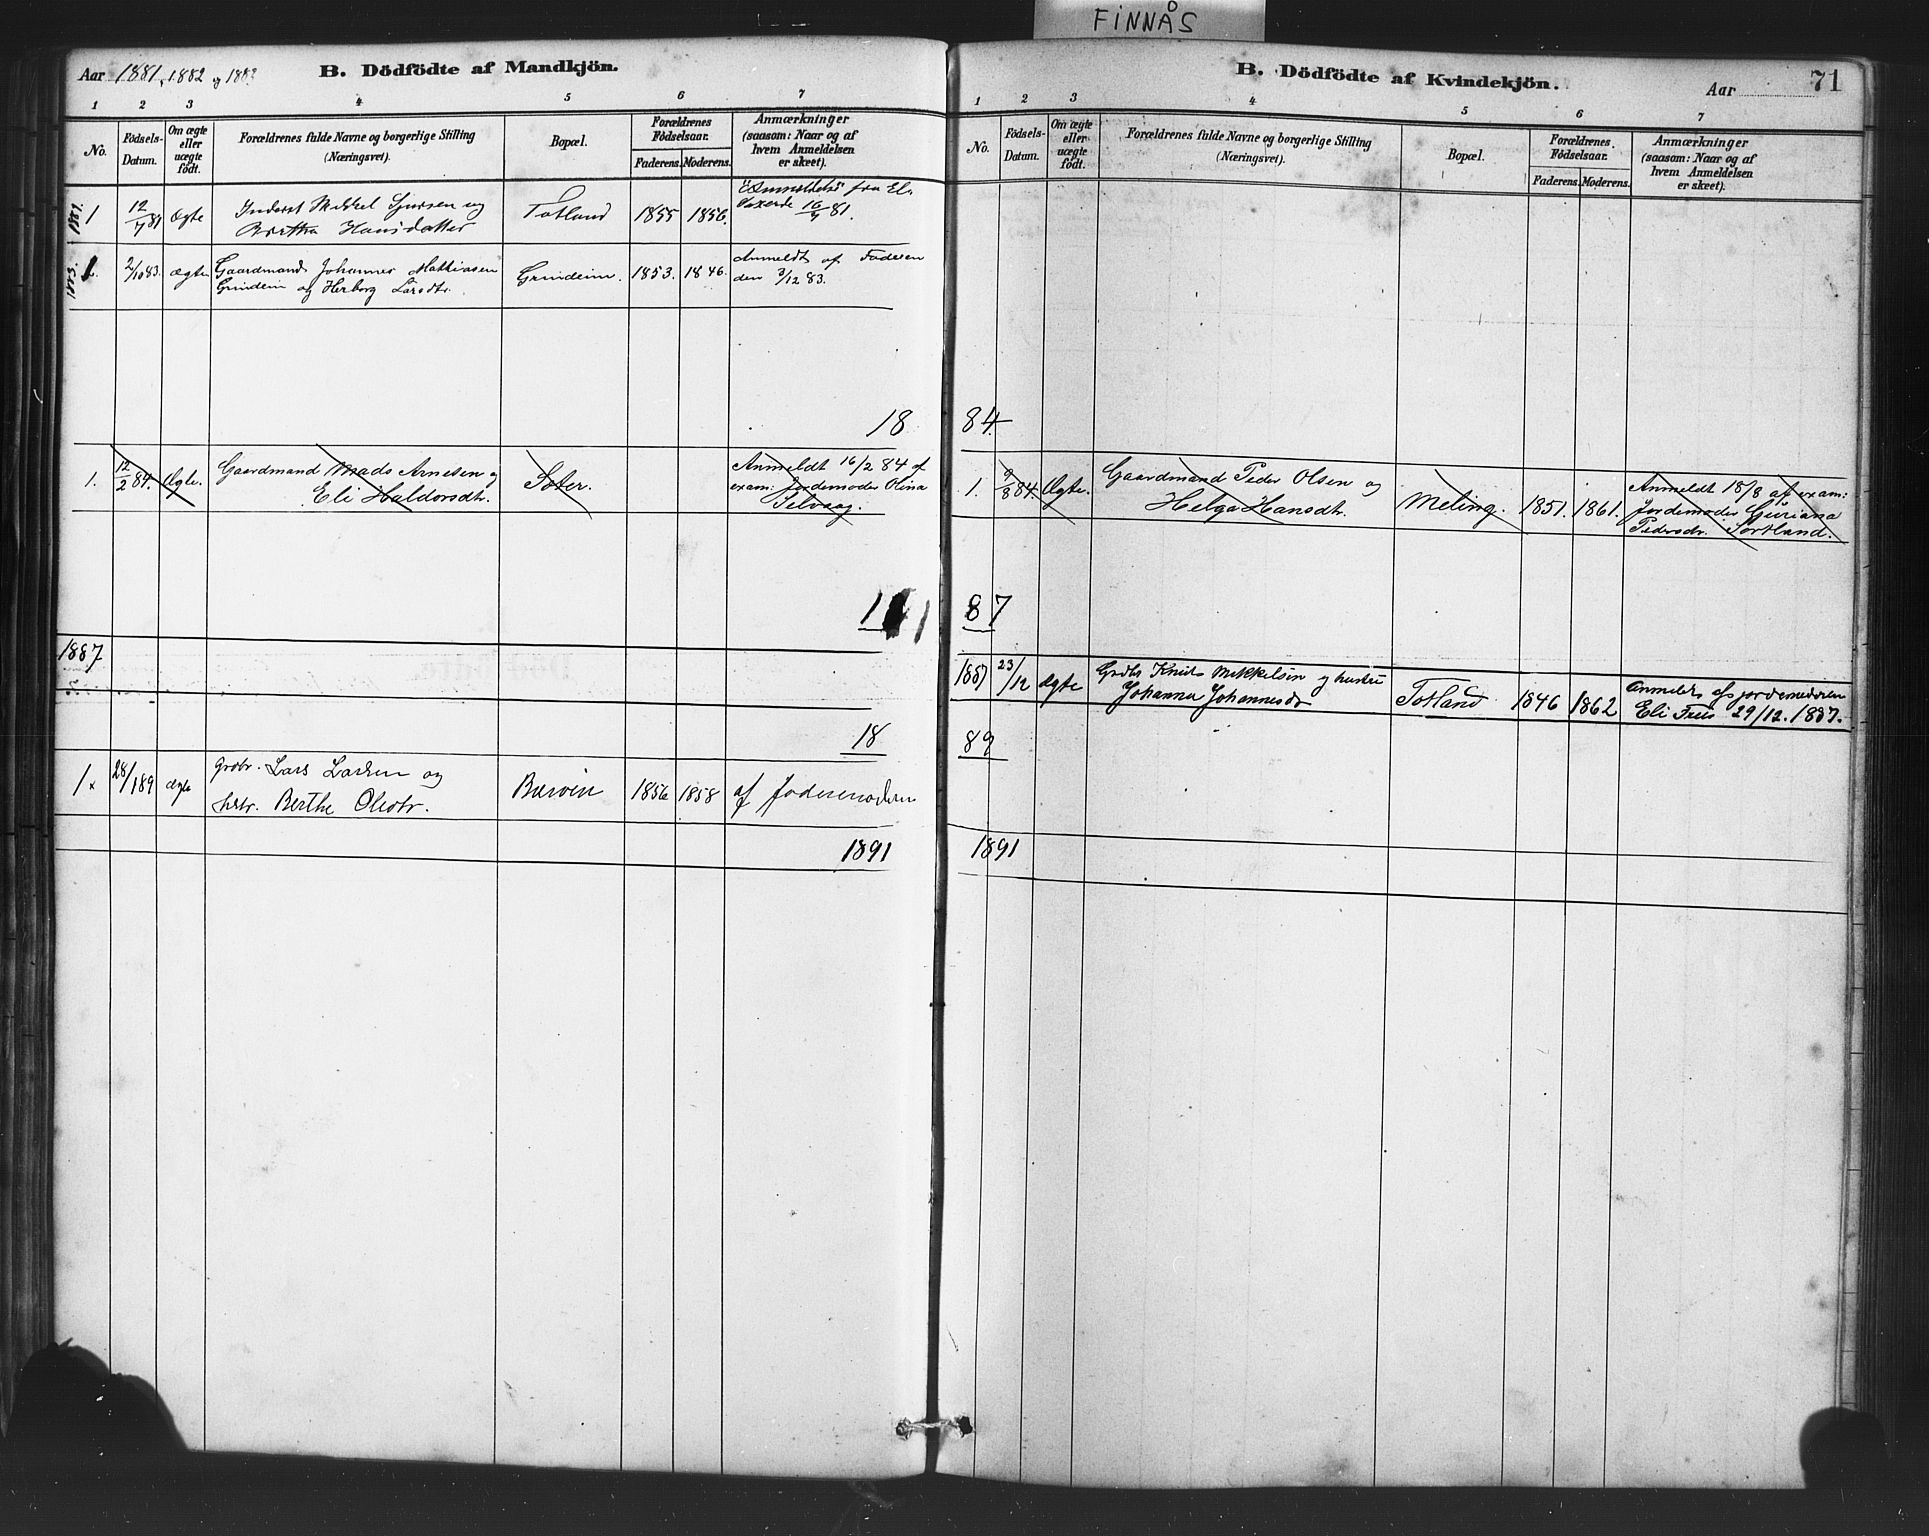 FINNÅS
Aar 1881, 1882 og 1883
B. Dödfödte af Mandkjön.
1 2 3 4 5 6 7
No.
Födsels-
Datum.
Om ægte
eller
uægte
født.
Forældrenes fulde Navne og borgerlige Stilling
(Næringsvei).
Bopæl.
Forældrenes
Födselsaar.
Faderens. Moderens.
Anmærkninger
(saasom: Naar og af
hvem Anmeldelsen
er skeet).
1881. 1 12/7 81 Ægte Inderst Mikkel Sjursen og Totland 1855 1856. Anmeldelse fra Eli
Brertha Hansdatter 16/7 81.
1883. 1. 2/10 83. Ægte Gaardmand Johannes Mathiasen Grindeim. 1853. 1846. Anmeldt af Faderen
Grindeim og Herborg Larsdtr. den 3/12 83.
18
1. 12/2 84. Ægte. Gaardmand Mads Arnesen og Anmeldt 16/2 84 af
Eli Haldorsdtr. exam: Jordemoder Olina
Selvaag.
1
1887
18
1 x 28/1 89 ægte Grdbr. Lars Larsen og 1856 1858 af Jordemoderen
hstr. Berthe Olsdtr.
1891
B. Dödfödte af Kvindekjön.
Aar 71
1 2 3 4 5 6 7
No.
Födsels-
Datum.
Om ægte
eller
uægte
födt.
Forældrenes fulde Navne og borgerlige Stilling
(Næringsvei).
Bopæl.
Forældrenes
Födselsaar.
Faderens. Moderens.
Anmærkninger
(saasom: Naar og af
hvem Anmeldelsen
er skeet).
84.
1. 9/8 84. Ægte. Gaardmand Peder Olsen og Meling. 1851. 1861. Anmeldt 18/8 af exam:
Helga Hansdtr. Jordemoder Guriana
Pedersdtr. Sortland.
87
1887 23/12 Ægte Grdbr Knud Mikkelsen og hustru Totland 1846 1862 Anmeldt af jordemoderen
Johanna Johannesdr Eli Friis 29/12. 1887.
89
1891